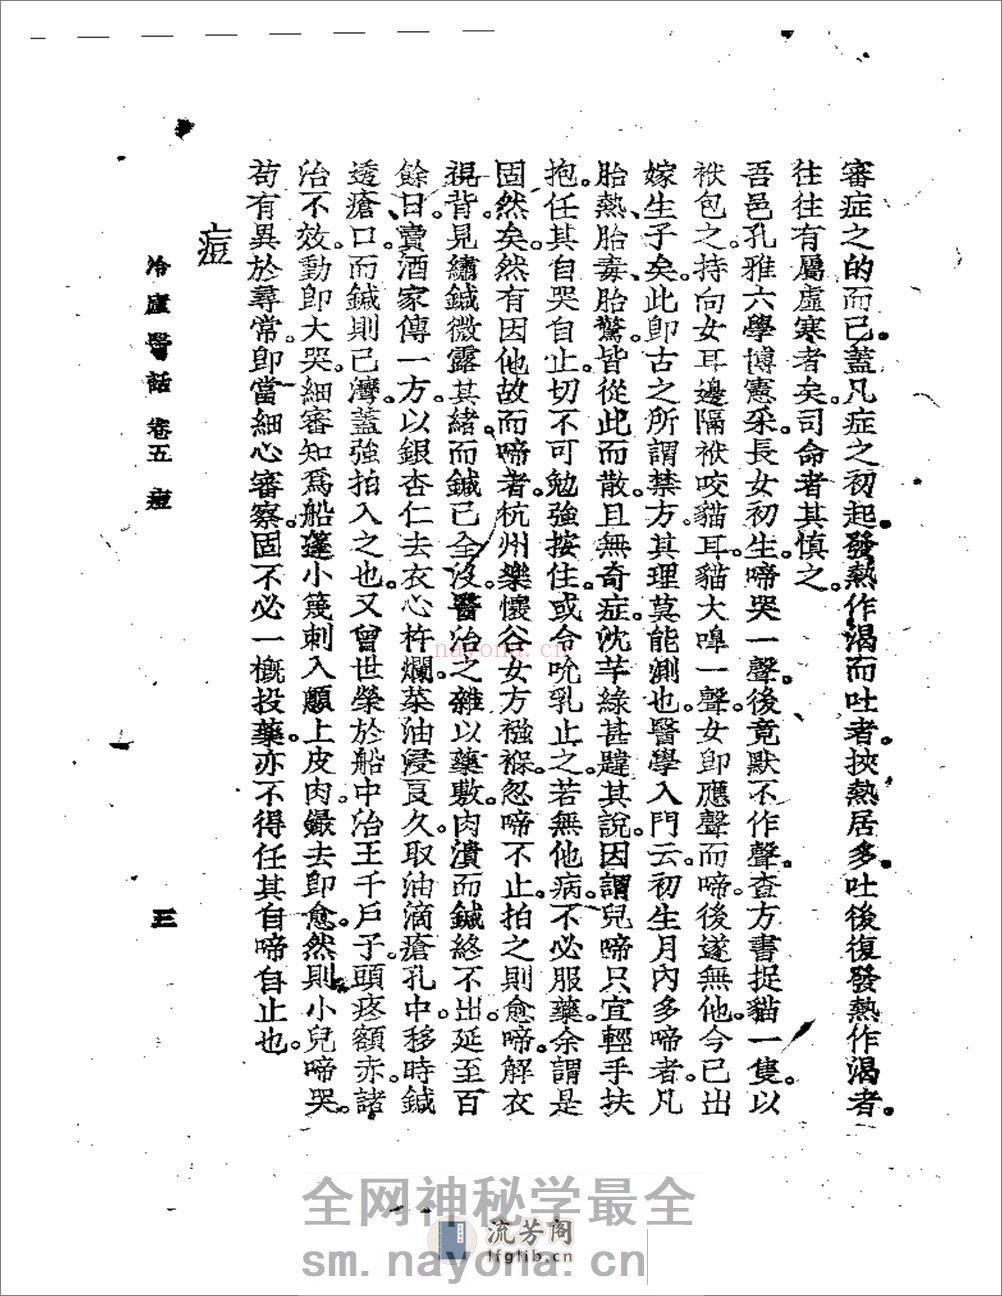 審症之的而已。蓋凡症之初起。發熱作渴而吐者。挾熱居多。吐後復發熱作渴者。
往往有屬虛寒者矣。司命者其慎之。
吾邑孔雅六學博憲采。長女初生。啼哭一聲。後竟默不作聲。查方書捉貓一隻。以
袱包之。持向女耳邊隔袱咬貓耳。貓大嘷一聲。女即應聲而啼。後遂無他。今已出
嫁生子矣。此即古之所謂禁方。其理莫能測也。醫學入門云。初生月內多啼者。凡
胎熱、胎毒、胎驚、皆從此而散。且無奇症。沈芊綠甚韙其說。因謂兒啼只宜輕手扶
抱。任其自哭自止。切不可勉強按住。或令吮乳止之。若無他病。不必服藥。余謂是
固然矣。然有因他故而啼者。杭州樂懷谷女方襁褓。忽啼不止。拍之則愈啼。解衣
視背。見繡鍼微露其緒。而鍼已全沒。醫治之。雜以藥敷。肉潰而鍼終不出。延至百
餘日。賣酒家傳一方。以銀杏仁去衣心杵爛。菜油浸良久。取油滴瘡孔中。移時鍼
透瘡口。而鍼則已灣。蓋強拍入之也。又曾世榮於船中治王千戶子。頭疼額赤。諸
治不效。動即大哭。細審知為船蓬小篾刺入顖上皮肉。鑷去即愈。然則小兒啼哭。
苟有異於尋常。即當細心審察。固不必一概投藥。亦不得任其自啼自止也。
痘
冷廬醫話 卷五 痘
三
nayona.cn
全网神秘学最全
流芳阁
lfglib.cn
sm.nayona.cn